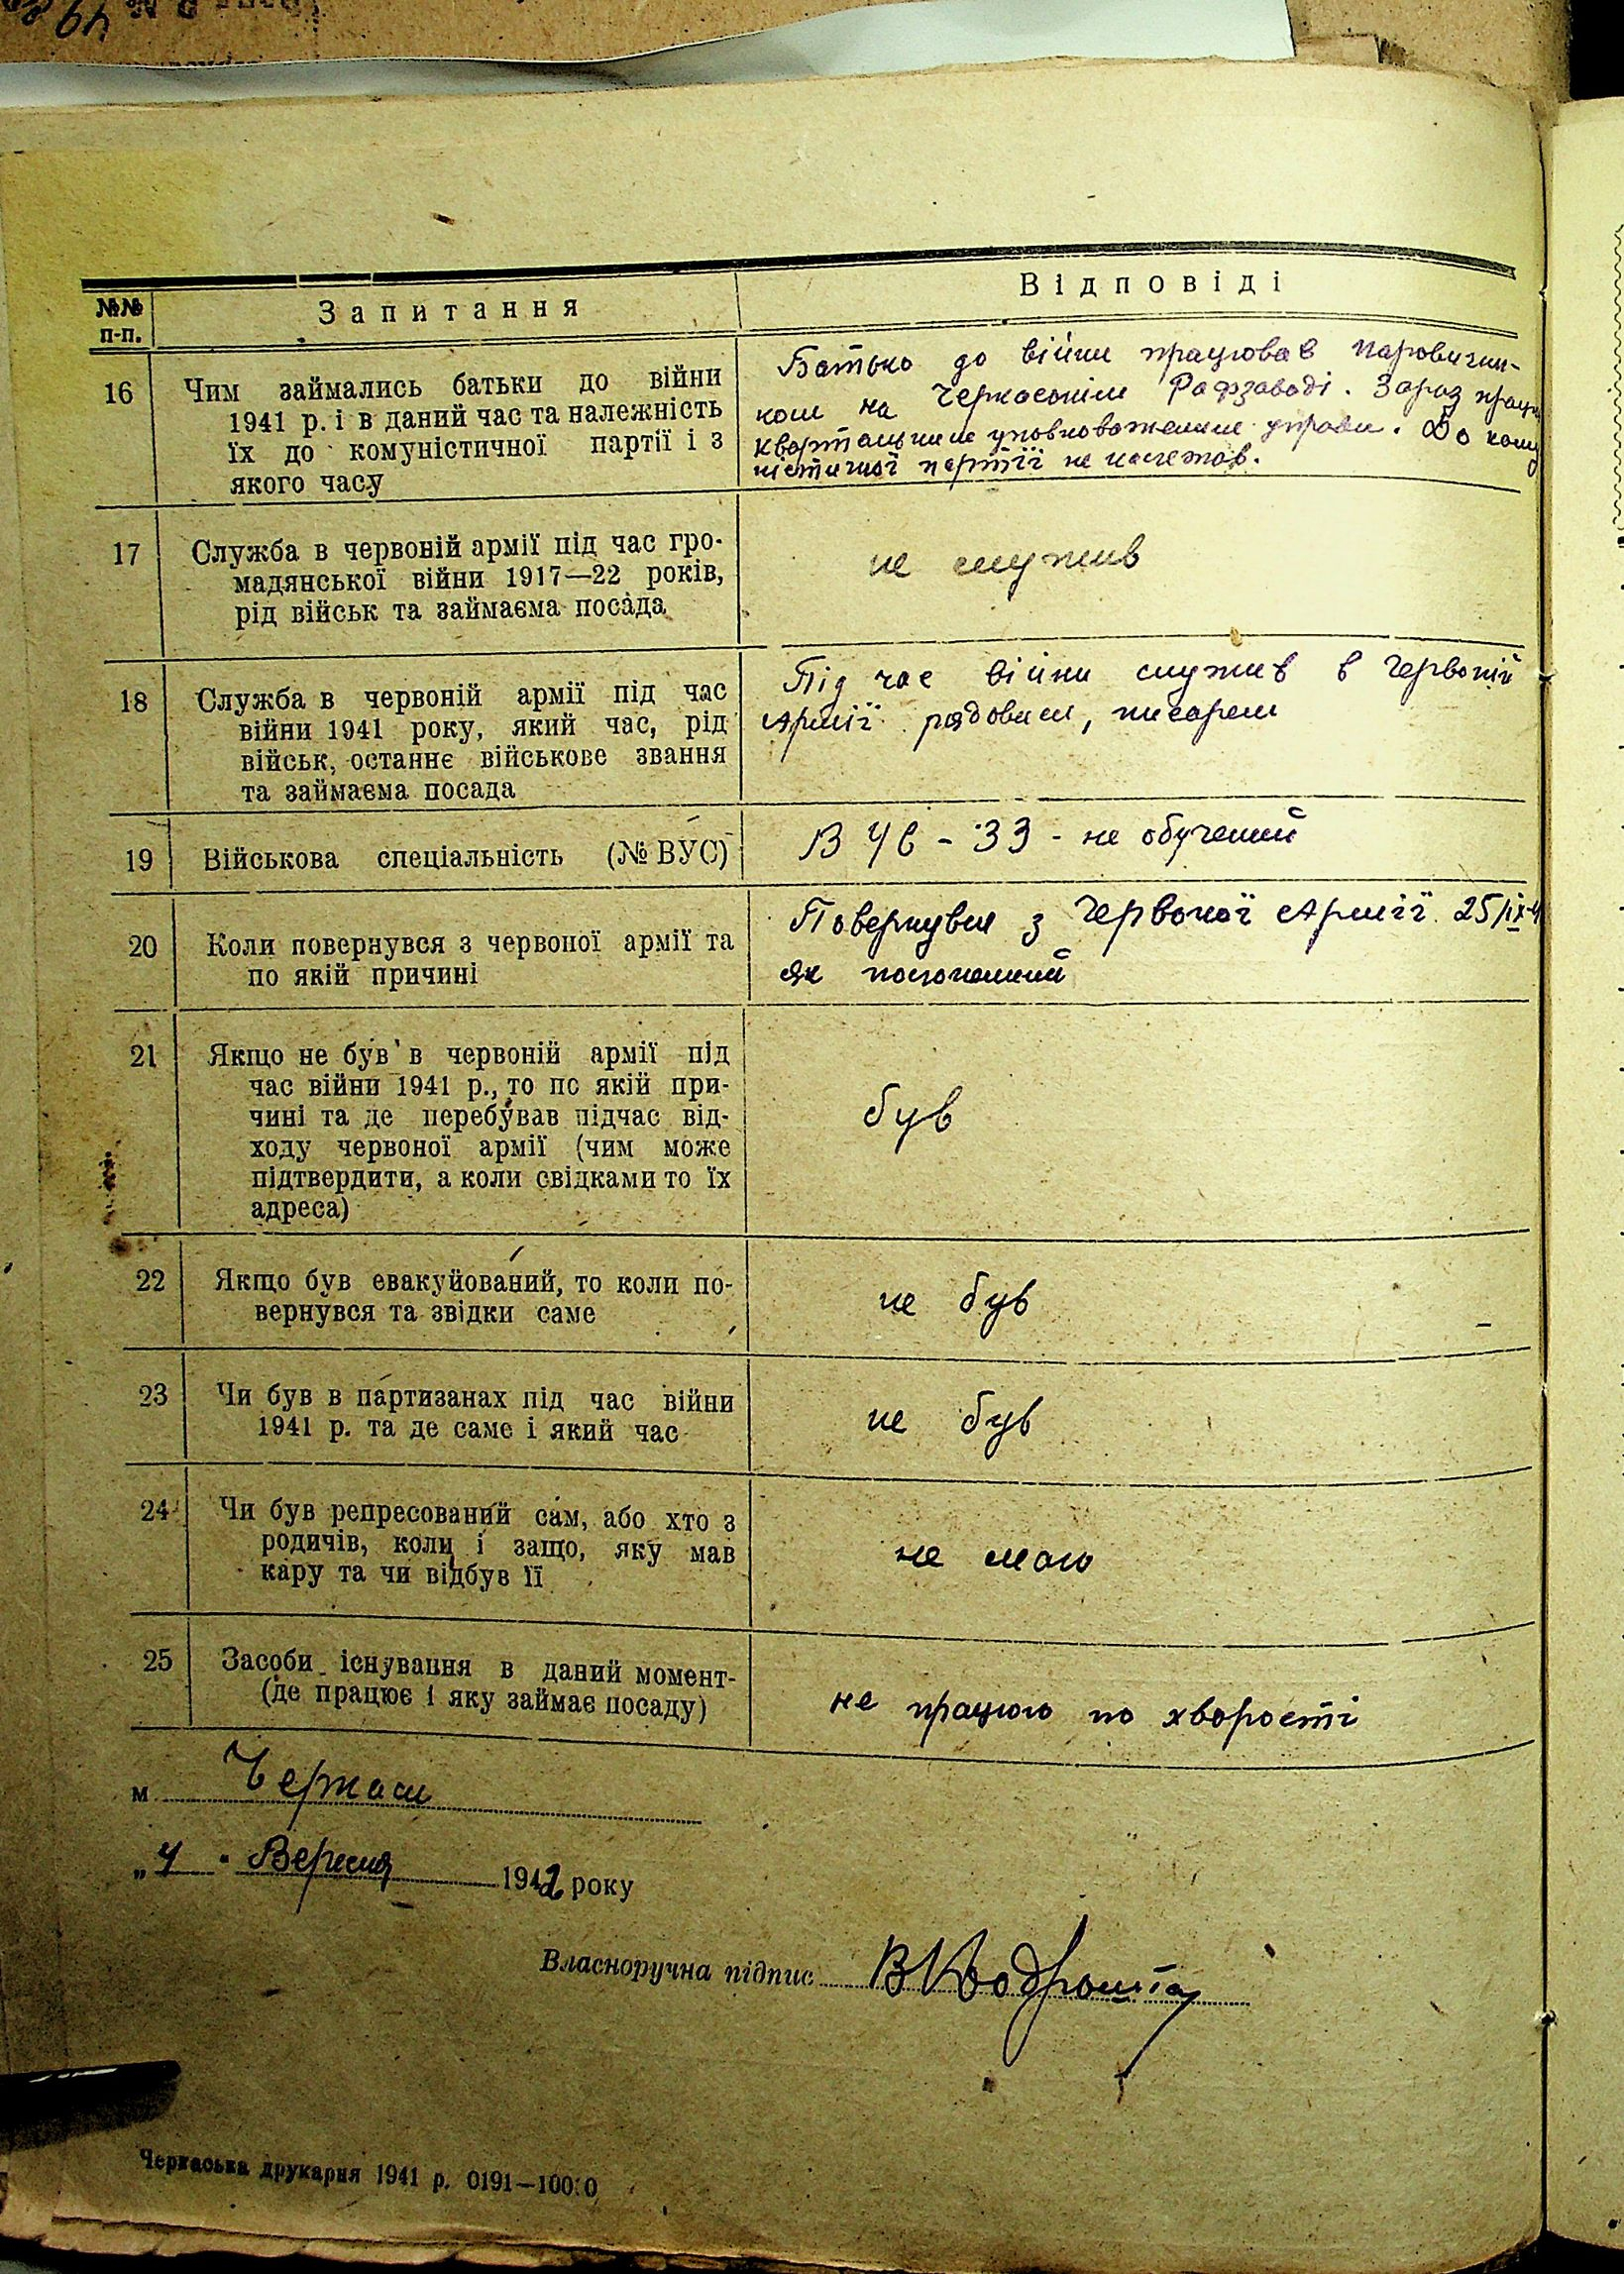 №№ п-п.
Запитання
Відповіді
16
Чим займались батьки до війни
1941 р. і в даний час та належність
їх до комуністичної партії і з
якого часу
Батько до війни працював
на Черкаськім Рафзаводі. Зараз
управи. До кому
партії не належав.
17
Служба в червоній армії під час гро-
мадянської війни 1917—22 років,
рід військ та займаєма посада
не служив
18
Служба в червоній армії під час
війни 1941 року, який час, рід
військ, останнє військове звання
та займаєма посада
Під час війни служив в Червоній
Армії рядовим, писарем
19
Військова спеціальність (№ ВУС)
не обучений
20
Коли повернувся з червоної армії та
по якій причині
Повернувся з Червоної Армії 25/ІХ
як полонений
21
Якщо не був в червоній армії під
час війни 1941 р., то по якій при-
чині та де перебував підчас від-
ходу червоної армії (чим може
підтвердити, а коли свідками то їх
адреса)
був
22
Якщо був евакуйований, то коли по-
вернувся та звідки саме
не був
23
Чи був в партизанах під час війни
1941 р. та де саме і який час
не був
24
Чи був репресований сам, або хто з
родичів, коли і защо, яку мав
кару та чи відбув її
не маю
25
Засоби існування в даний момент-
(де працює і яку займає посаду)
не працюю по хворості
м. Черкаси
„4" Вересня 1942 року
Власноручна підпис
Черкаська друкарня 1941 р. 0191—10000